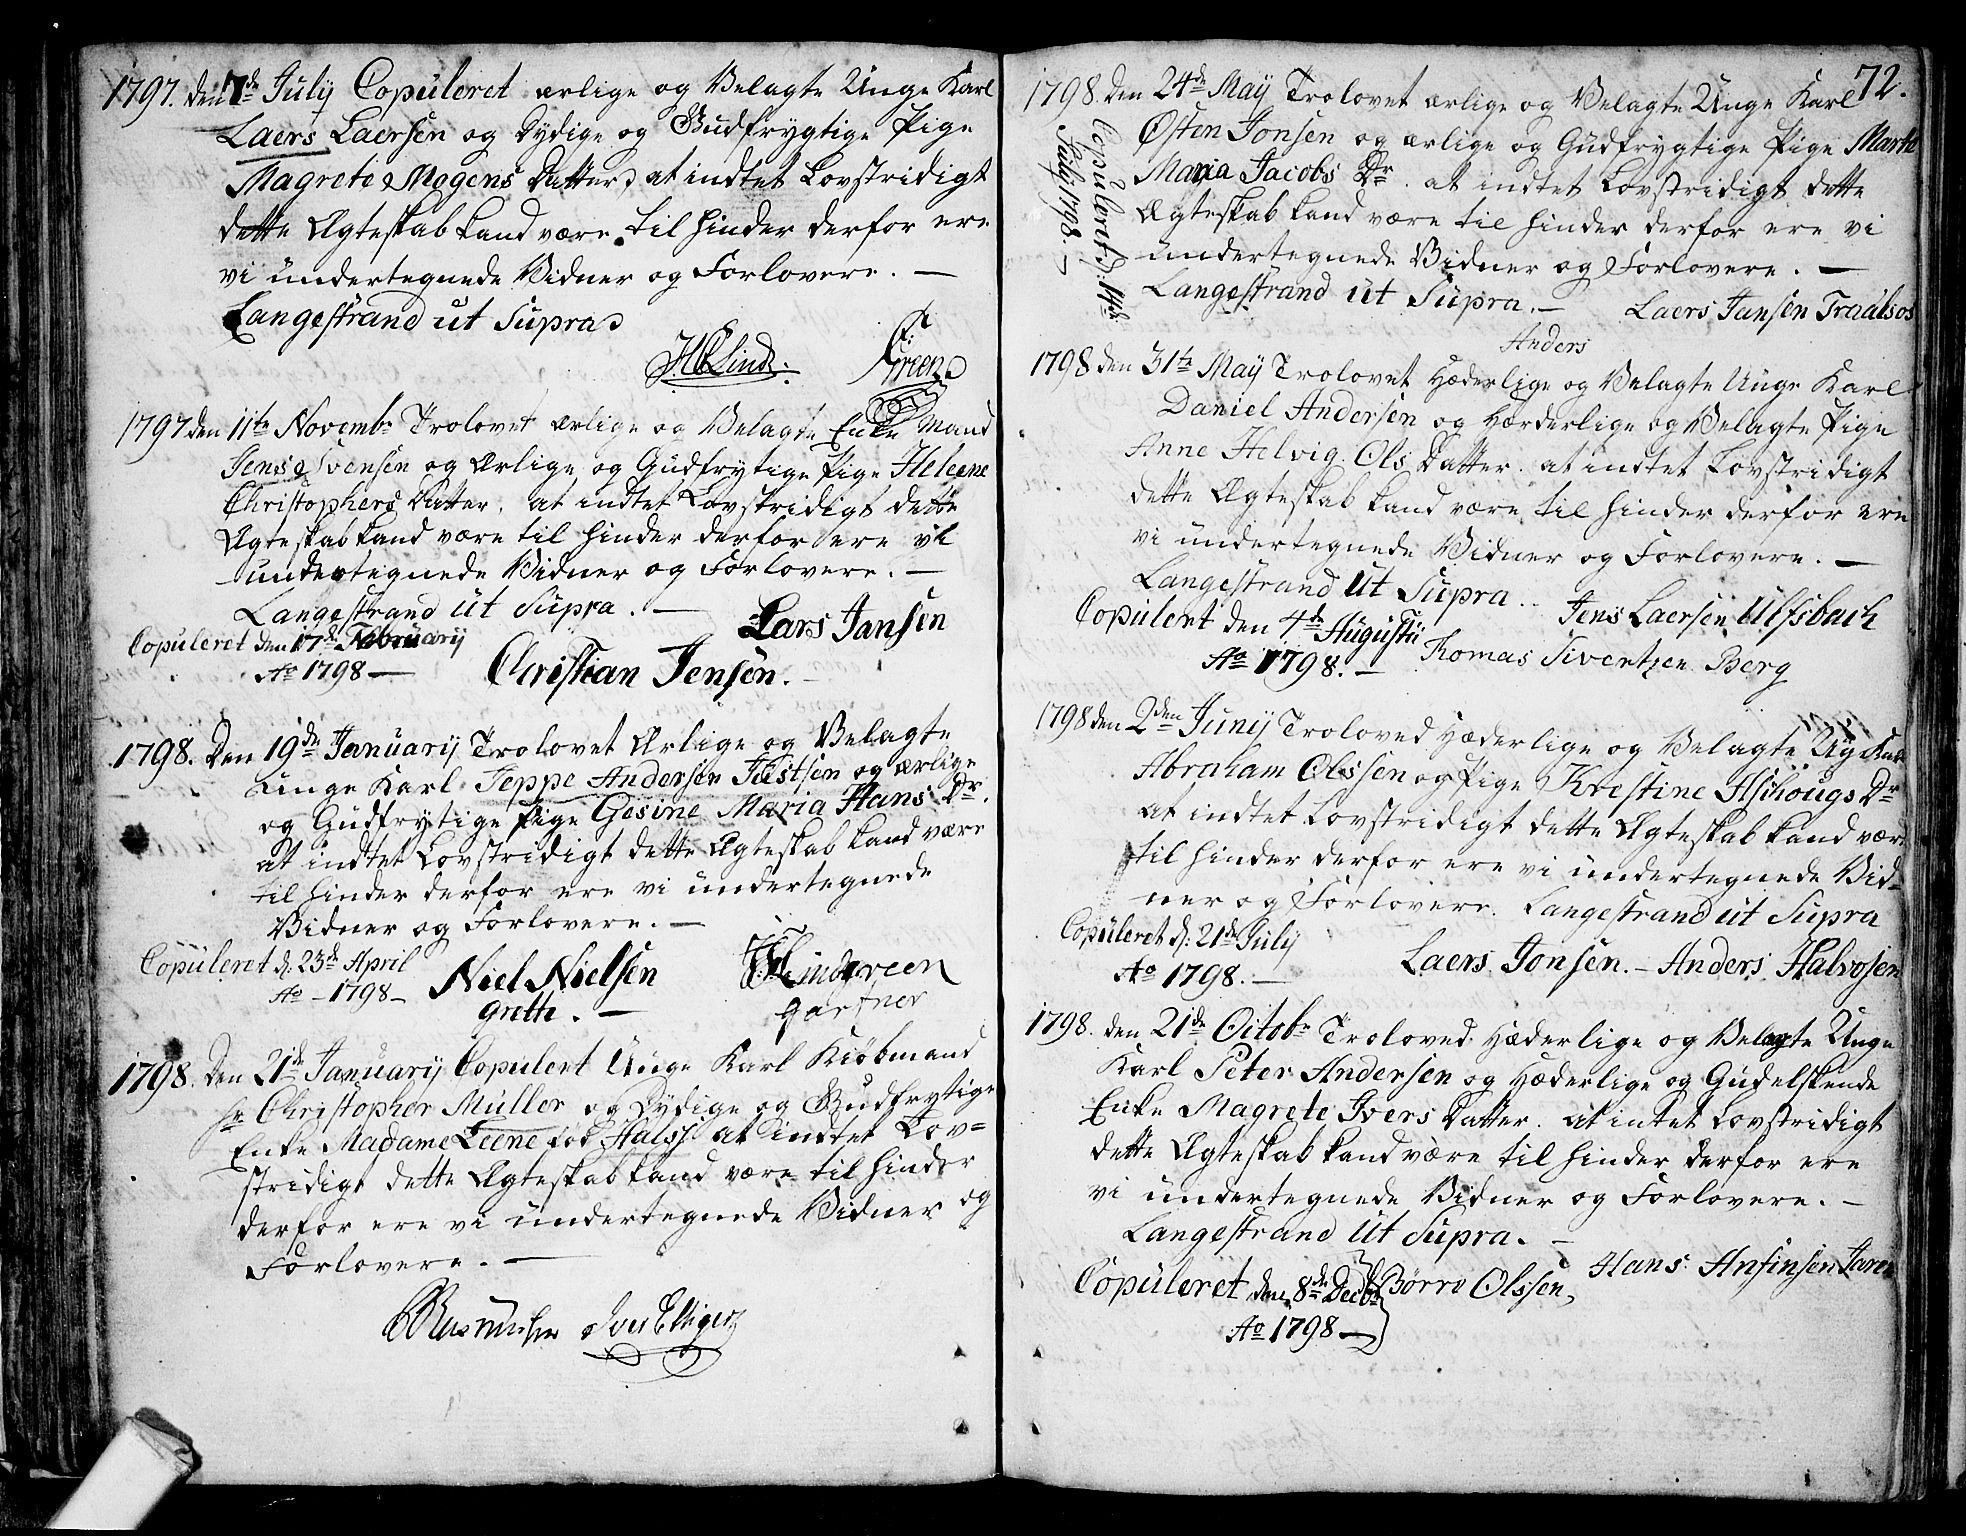 1797. den 7de July Copuleret ærlige og Velagte Unge Karl
Laers Laersen og Dydige og Gudfrygtige Pige
Magrete Mogens Datter, at indtet Lovstridigt
dette Ægteskab kand være til hinder derfor ere
vi undertegnede Vidner og Forlovere. —
Langestrand ut Supra
Green
1797 den 11te Novembr Trolovet ærlige og Velagte Enke Mand
Jens Svensen og Ærlige og Gudfrytige Pige Heleene
Christophers Datter. at indtet Lovstridigt dette
Ægteskab kand være til hinder derfor ere vi
undertegnede Vidner og Forlovere. —
Langestrand ut Supra. —
Lars Jansen
Copuleret den 17de Februarij
Ao 1798 —
Christian Jensen.
1798. Den 19de Januarij Trolovet Ærlige og Velagte
unge Karl Jeppe Andersen Justsen og ærlige
og Gudfrytige Pige Gesine Maria Hans Dr.
at indtet Lovstridigt dette Ægteskab kand være
til hinder derfor ere vi undertegnede
Vidner og Forlovere. —
Copuleret d. 23de April
Ao - 1798 -
Niel Nielsen
grette. —
Lindgreen
gartner
1798. Den 21de Januarij Copulert Unge Karl Kiøbmand
Hr Christopher Müller og Dydige og Gudfrytige
Enke Madame Leene fød Halss at indtet Lov=
stridigt dette Ægteskab kand være til hinder
derfor ere vi undertegnede Vidner og
Forlovere. —
Rasmussen Iver Elliger
72.
1798. den 24de May Trolovet ærlige og Velagte Unge Karl
Østen Jonsen og ærlige og Gudfrygtige Pige Marte
Maria Jacobs Dr. at indtet Lovstridigt dette
Ægteskab kand være til hinder derfor ere vi
undertegnede Vidner og Forlovere. —
Langestrand ut Supra. —
Laers Jansen
Anders
Copuleret d:
July 1798. —
1798 den 31te May Trolovet Hæderlige og Velagte Unge Karl
Daniel Andersen og Hæderlige og Velagte Pige
Anne Helvig Ols Datter. at indtet Lovstridigt
dette Ægteskab kand være til hinder derfor ere
vi undertegnede Vidner og Forlovere. —
Langestrand ut Supra.
Jens Laersen Ulfsback
Copulert den 4de Augustii
Ao 1798. —
Thomas Sivertzen Berg
1798 den 2den Junij Troloved Hæderlige og Velagte Ug Karl
Abraham Olssen og Pige Krestine Aschougs Dr
at indtet Lovstridigt dette Ægteskab kand være
til hinder derfor ere vi undertegnede Vid=
ner og Forlovere. Langestrand ut Supra
Copuleret d: 21de July
Ao 1798. —
Laers Jonsen. — Anders Halvosen
1798. den 21de Octobr Troloved Hæderlige og Velagte Unge
Karl Peter Andersen og Hæderlige og Gudelskende
Enke Magrete Ivers Datter. at intet Lovstridigt
dette Ægteskab kand være til hinder derfor ere
vi undertegnede Vidner og Forlovere. —
Langestrand ut Supra. —
Copuleret den 8de Decbr
Ao 1798 —
Børre Olssen,
Hans Ansinsen